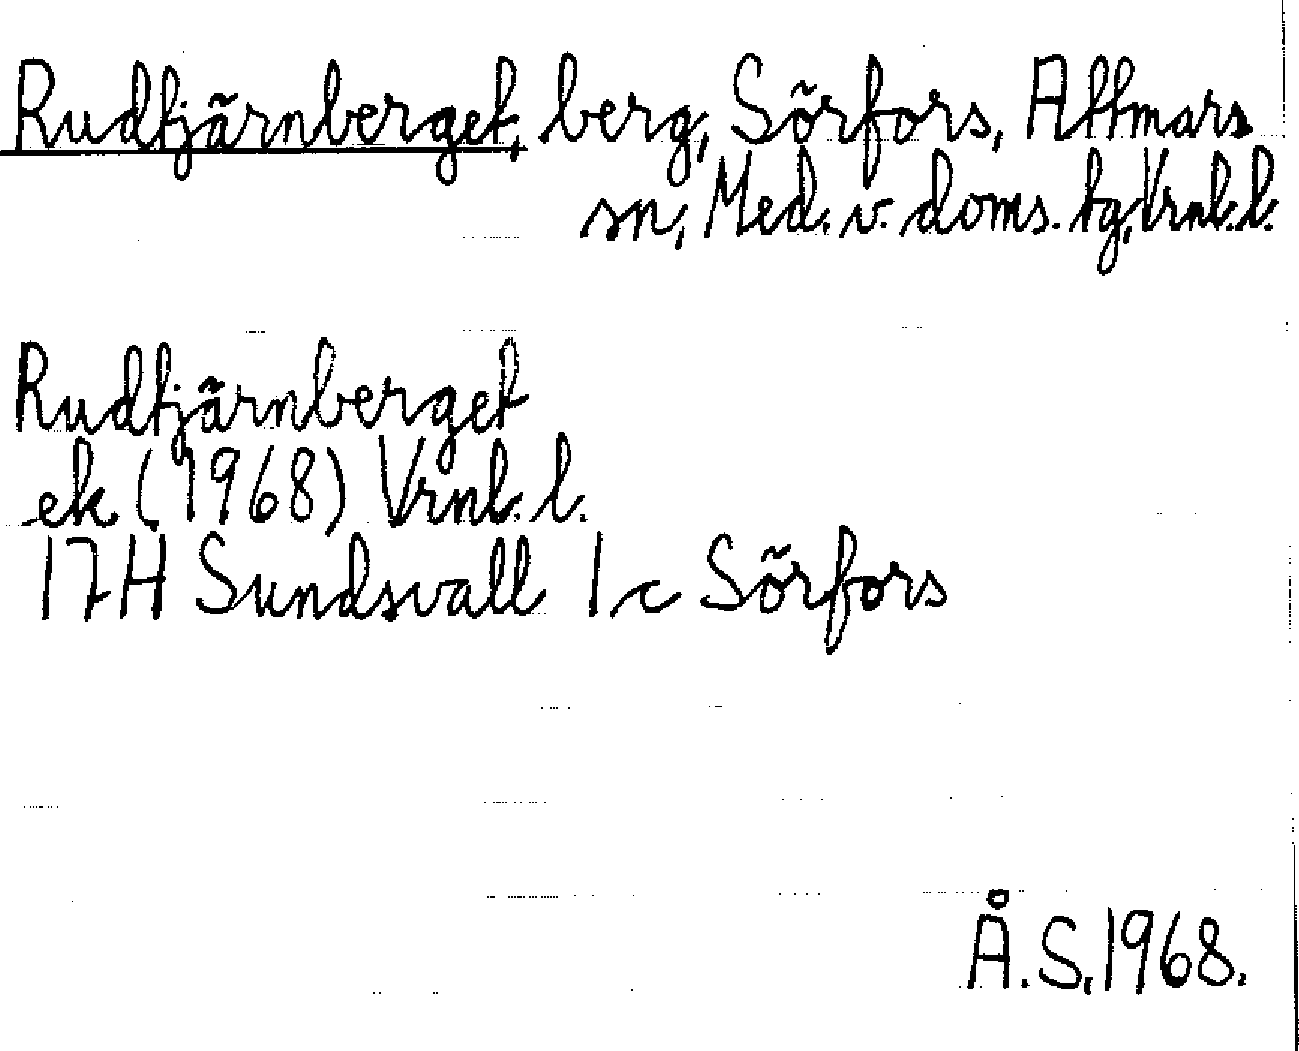 Rudtjärnberget, berg, Sörfors, Attmars
sn, Med. v. doms. tg, Vrnl. l.
Rudtjärnberget
ek (1968) Vrnl. l.
17H Sundsvall 1 c Sörfors
Å.S. 1968.